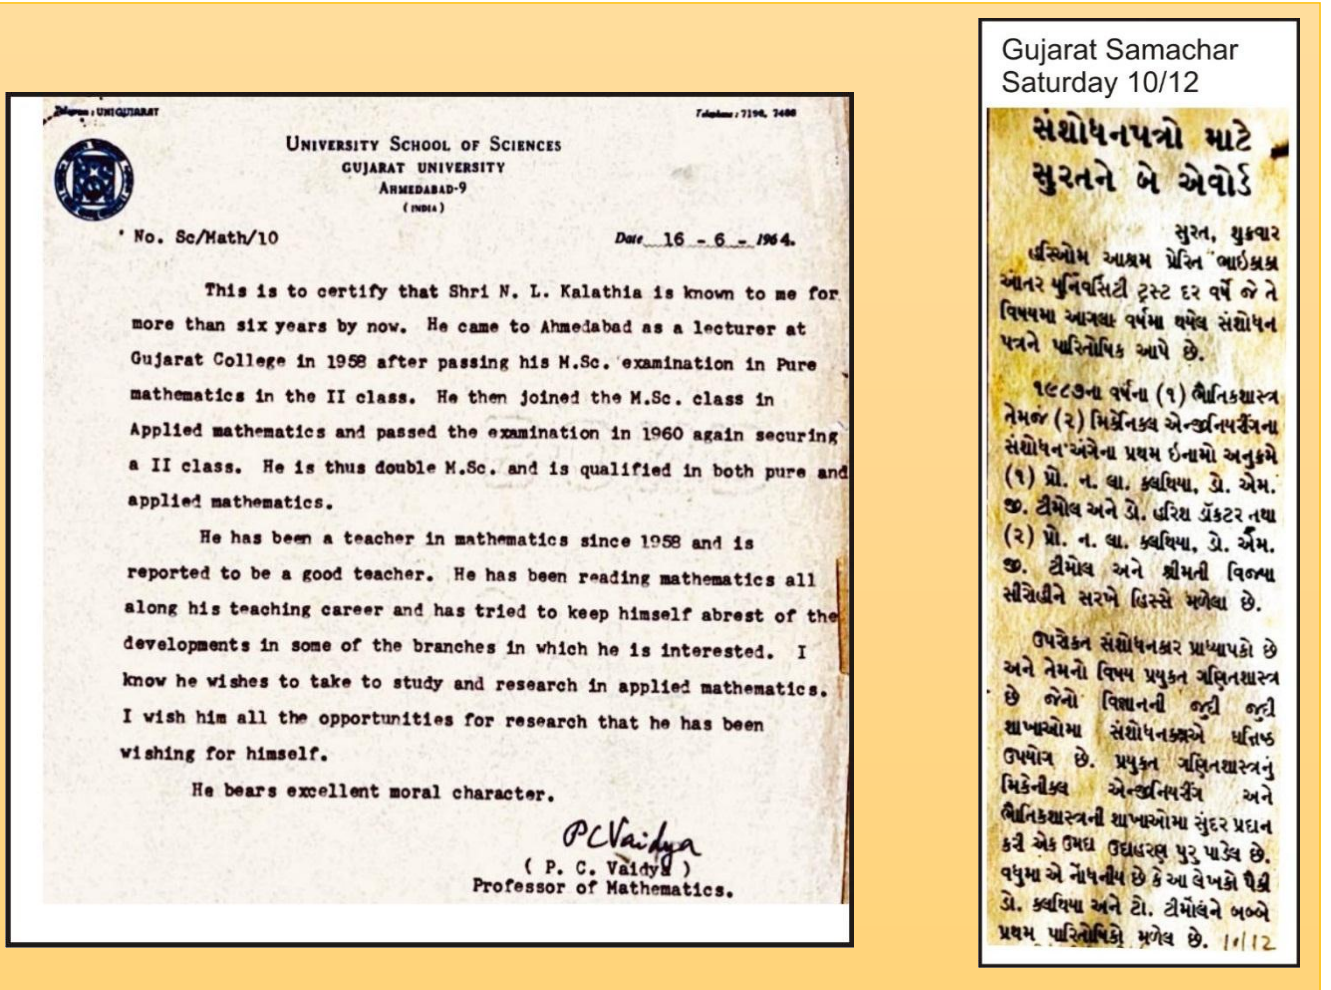 Telegrams : UNIGUJARAT
Telephone : 7190, 7400
UNIVERSITY SCHOOL OF SCIENCES
GUJARAT UNIVERSITY
AHMEDABAD-9
( INDIA )
No. Sc/Math/10
Date 16 - 6 - 1964.
This is to certify that Shri N. L. Kalathia is known to me for
more than six years by now. He came to Ahmedabad as a lecturer at
Gujarat College in 1958 after passing his M.Sc. examination in Pure
mathematics in the II class. He then joined the M.Sc. class in
Applied mathematics and passed the examination in 1960 again securing
a II class. He is thus double M.Sc. and is qualified in both pure and
applied mathematics.
He has been a teacher in mathematics since 1958 and is
reported to be a good teacher. He has been reading mathematics all
along his teaching career and has tried to keep himself abrest of the
developments in some of the branches in which he is interested. I
know he wishes to take to study and research in applied mathematics.
I wish him all the opportunities for research that he has been
wishing for himself.
He bears excellent moral character.
PCVaidya
( P. C. Vaidya )
Professor of Mathematics.
Gujarat Samachar
Saturday 10/12
સંશોધનપત્રો માટે
સુરતને બે એવોર્ડ
સુરત, શુક્રવાર
હરિઓમ આશ્રમ પ્રેરિત ભાઇકાકા
આંતર યુનિવર્સિટી ટ્રસ્ટ દર વર્ષે જે તે
વિષયમા આગલા વર્ષમા થયેલ સંશોધન
પત્રને પારિતોષિક આપે છે.
૧૯૮૭ના વર્ષના (૧) ભૌતિકશાસ્ત્ર
તેમજ (૨) મિકેનિકલ એન્જીનિયરીંગના
સંશોધન અંગેના પ્રથમ ઇનામો અનુક્રમે
(૧) પ્રો. ન. લા. કલથિયા, ડો. એમ.
જી. ટીમોલ અને ડો. હરિશ ડૉકટર તથા
(૨) પ્રો. ન. લા. કલથિયા, ડો. એમ.
જી. ટીમોલ અને શ્રીમતી વિજ્યા
સીરોહીને સરખે હિસ્સે મળેલા છે.
ઉપરોકત સંશોધનકાર પ્રાધ્યાપકો છે
અને તેમનો વિષય પ્રયુકત ગણિતશાસ્ત્ર
છે જેનો વિજ્ઞાનની જૂદી જૂદી
શાખાઓમા સંશોધનક્ષેત્રએ ઘનિષ્ઠ
ઉપયોગ છે. પ્રયુકત ગણિતશાસ્ત્રનું
મિકેનીકલ એન્જીનિયરીંગ અને
ભૌતિકશાસ્ત્રની શાખાઓમા સુંદર પ્રદાન
કરી એક ઉમદા ઉદાહરણ પુરુ પાડેલ છે.
વધુમા એ નોંધનીય છે કે આ લેખકો પૈકી
ડો. કલથિયા અને ડો. ટીમોલને બબ્બે
પ્રથમ પારિતોષિકો મળેલ છે. 10/12